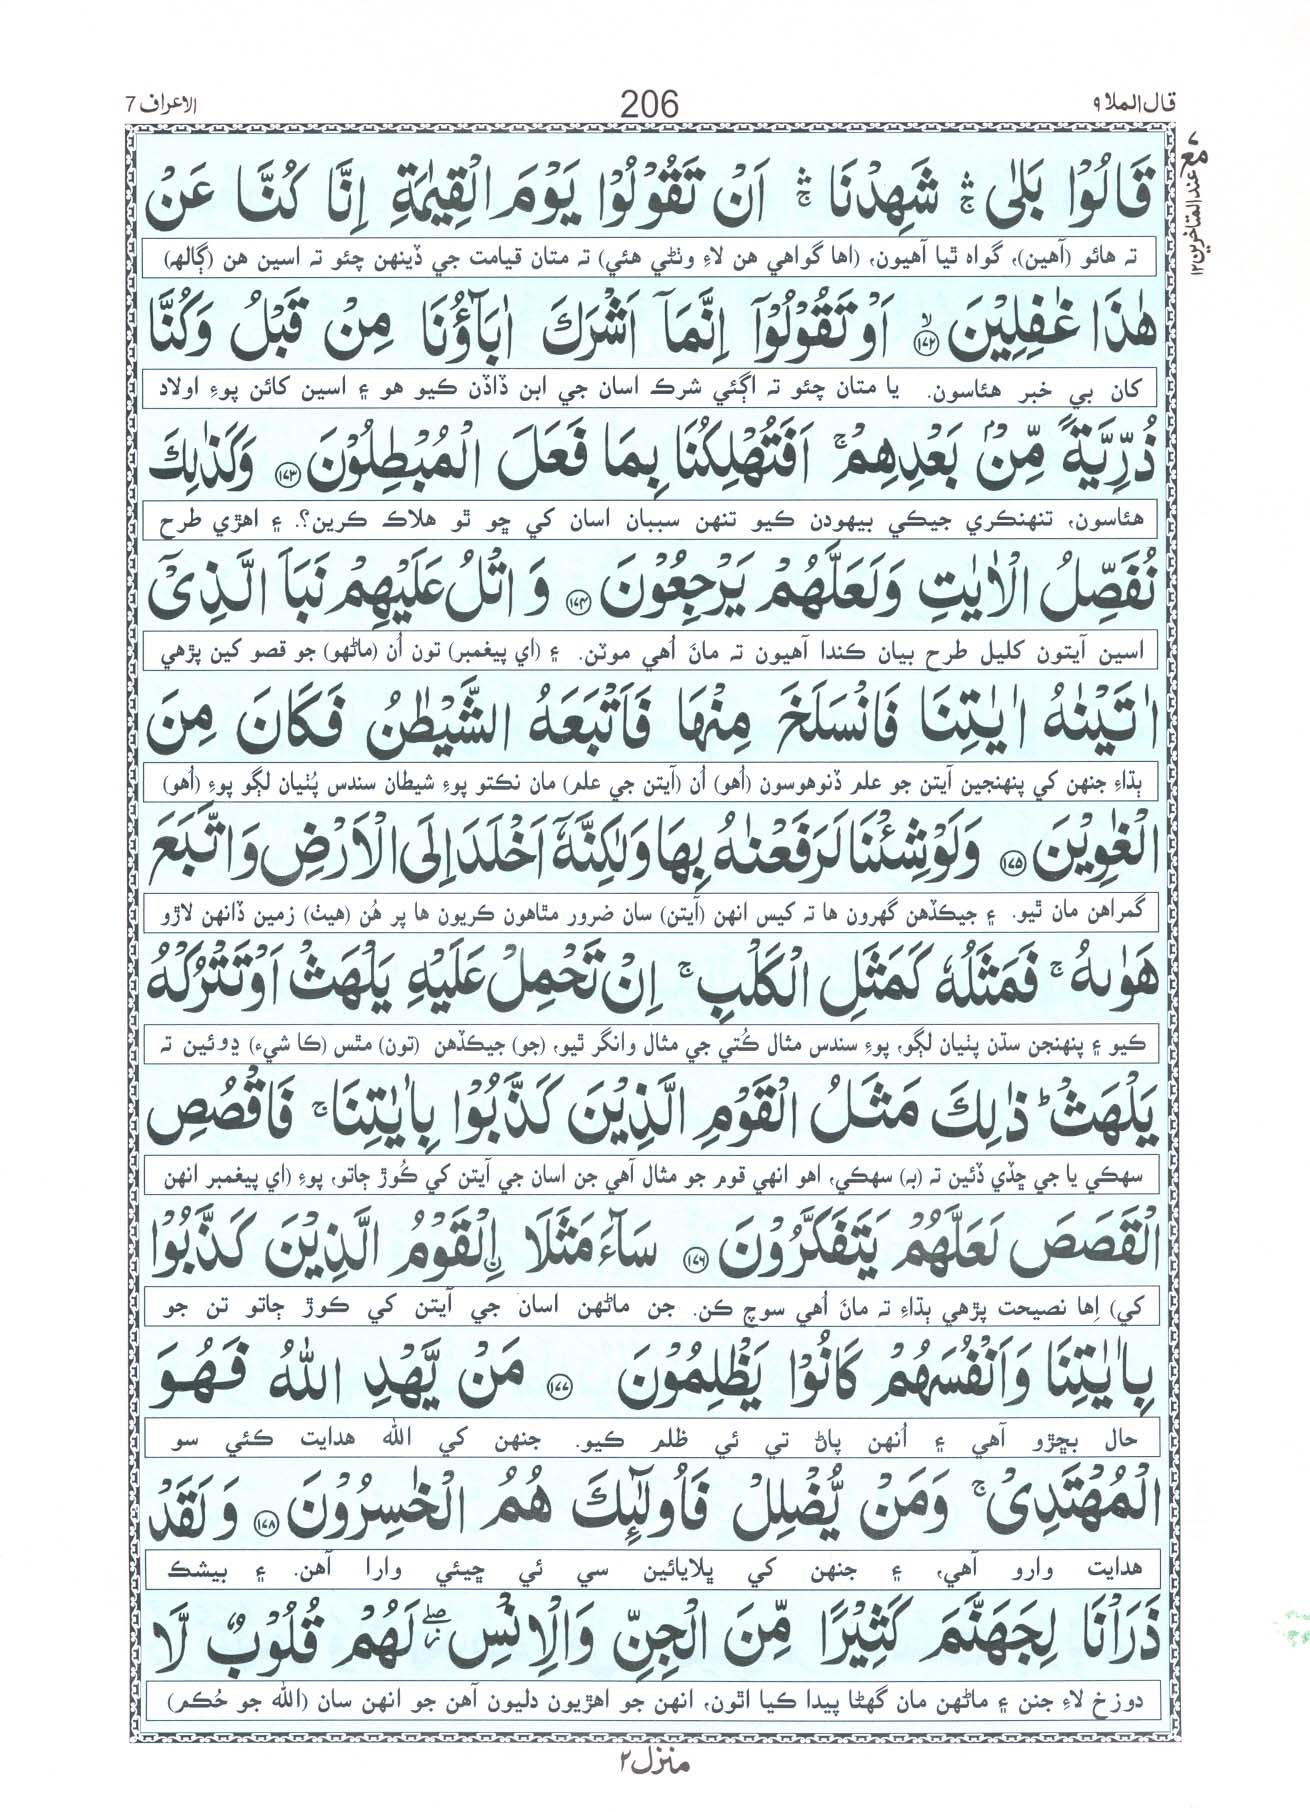 قال الملا ۹
206
الاعراف 7
مع ۷ عند المتاخرین ۱۲
قَالُوْا بَلٰى ۛۚ شَهِدْنَا ۛۚ اَنْ تَقُوْلُوْا يَوْمَ الْقِيٰمَةِ اِنَّا كُنَّا عَنْ
ته هائو (آهين)، گواه ٿيا آهيون، (اها گواهي هن لاءِ ونٺي هئي) ته متان قيامت جي ڏينهن چئو ته اسين هن (ڳالهہ)
هٰذَا غٰفِلِيْنَ ۙ‏﴿۱۷۲﴾ اَوْ تَقُوْلُوْۤا اِنَّمَاۤ اَشْرَكَ اٰبَآؤُنَا مِنْ قَبْلُ وَكُنَّا
کان بي خبر هئاسون. يا متان چئو ته اڳئي شرڪ اسان جي ابن ڏاڏن ڪيو هو ۽ اسين کائن پوءِ اولاد
ذُرِّيَّةً مِّنْۢ بَعْدِهِمْ ۚ اَفَتُهْلِكُنَا بِمَا فَعَلَ الْمُبْطِلُوْنَ ﴿۱۷۳﴾ وَكَذٰلِكَ
هئاسون، تنهنڪري جيڪي بيهودن ڪيو تنهن سببان اسان کي ڇو ٿو هلاڪ ڪرين؟. ۽ اهڙي طرح
نُفَصِّلُ الْاٰيٰتِ وَلَعَلَّهُمْ يَرْجِعُوْنَ ﴿۱۷۴﴾ وَ اتْلُ عَلَيْهِمْ نَبَاَ الَّذِىْۤ
اسين آيتون کليل طرح بيان ڪندا آهيون ته مانَ اُهي موٽن. ۽ (اي پيغمبر) تون اُن (ماڻهو) جو قصو کين پڙهي
اٰتَيْنٰهُ اٰيٰتِنَا فَانْسَلَخَ مِنْهَا فَاَتْبَعَهُ الشَّيْطٰنُ فَكَانَ مِنَ
ٻڌاءِ جنهن کي پنهنجين آيتن جو علم ڏنوهوسون (اُهو) اُن (آيتن جي علم) مان نڪتو پوءِ شيطان سندس پُٺيان لڳو پوءِ (اُهو)
الْغٰوِيْنَ ﴿۱۷۵﴾ وَلَوْ شِئْنَا لَرَفَعْنٰهُ بِهَا وَلٰكِنَّهٗۤ اَخْلَدَ اِلَى الْاَرْضِ وَاتَّبَعَ
گمراهن مان ٿيو. ۽ جيڪڏهن گهرون ها ته کيس انهن (آيتن) سان ضرور مٿاهون ڪريون ها پر هُن (هيٺ) زمين ڏانهن لاڙو
هَوٰٮهُ ۚ فَمَثَلُهٗ كَمَثَلِ الْكَلْبِ ۚ اِنْ تَحْمِلْ عَلَيْهِ يَلْهَثْ اَوْ تَتْرُكْهُ
ڪيو ۽ پنهنجن سڌن پٺيان لڳو، پوءِ سندس مثال ڪُتي جي مثال وانگر ٿيو، (جو) جيڪڏهن (تون) مٿس (ڪا شيء) ڍوئين ته
يَلْهَثْ ؕ ذٰلِكَ مَثَلُ الْقَوْمِ الَّذِيْنَ كَذَّبُوْا بِاٰيٰتِنَا ۚ فَاقْصُصِ
سهڪي يا جي ڇڏي ڏئين ته (به) سهڪي، اهو انهي قوم جو مثال آهي جن اسان جي آيتن کي ڪُوڙ ڄاتو، پوءِ (اي پيغمبر انهن
الْقَصَصَ لَعَلَّهُمْ يَتَفَكَّرُوْنَ ﴿۱۷۶﴾ سَآءَ مَثَلَا ۨالْقَوْمُ الَّذِيْنَ كَذَّبُوْا
کي) اِها نصيحت پڙهي ٻڌاءِ ته مانَ اُهي سوچ ڪن. جن ماڻهن اسان جي آيتن کي ڪوڙ ڄاتو تن جو
بِاٰيٰتِنَا وَاَنْفُسَهُمْ كَانُوْا يَظْلِمُوْنَ ﴿۱۷۷﴾ مَنْ يَّهْدِ اللّٰهُ فَهُوَ
حال بڇڙو آهي ۽ اُنهن پاڻ تي ئي ظلم ڪيو. جنهن کي الله هدايت ڪئي سو
الْمُهْتَدِىْ ۚ وَمَنْ يُّضْلِلْ فَاُولٰٓئِكَ هُمُ الْخٰسِرُوْنَ ﴿۱۷۸﴾ وَلَقَدْ
هدايت وارو آهي، ۽ جنهن کي ڀلايائين سي ئي ڇيئي وارا آهن. ۽ بيشڪ
ذَرَاْنَا لِجَهَنَّمَ كَثِيْرًا مِّنَ الْجِنِّ وَالْاِنْسِ ۖ لَهُمْ قُلُوْبٌ لَّا
دوزخ لاءِ جنن ۽ ماڻهن مان گهڻا پيدا ڪيا اٿون، انهن جو اهڙيون دليون آهن جو انهن سان (الله جو حُڪم)
منزل ۲